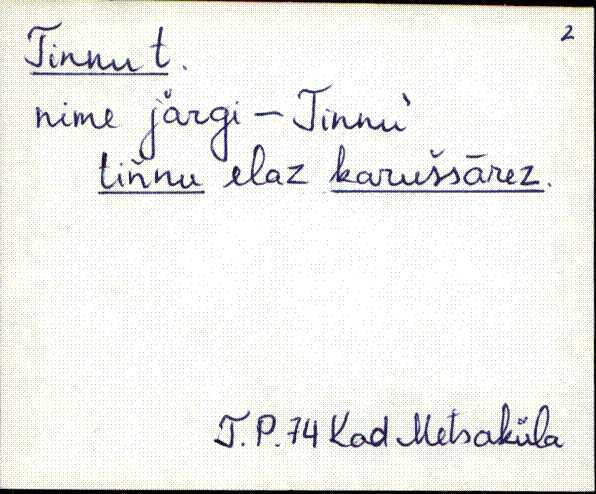 2
Tinnu t.
nime järgi – Tinnu`
tiǹnu elaz karuššārez.
T.P. 74 Kad Metsaküla